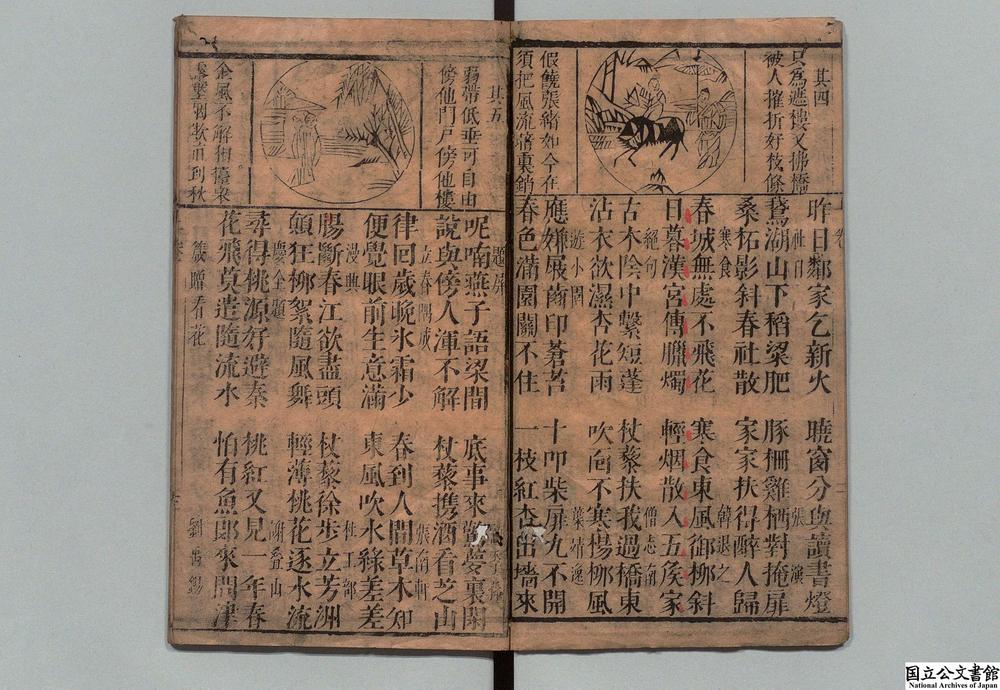 其四
只為遮樓又拂橋
被人摧折好枝條
假饒張緒如今在
須把風流暗裏銷
昨日鄰家乞新火 曉窗分與讀書燈
社日 張演
鵞湖山下稻粱肥 豚柵雞栖對掩扉
桑柘影斜春社散 家家扶得醉人歸
寒食 韓退之
春城無處不飛花 寒食東風御柳斜
日暮漢宮傳臘燭 輕烟散入五侯家
絕句 僧志南
古木陰中繫短蓬 杖藜扶我過橋東
沾衣欲濕杏花雨 吹面不寒楊柳風
遊小園 葉靖逸
應嫌屐齒印蒼苔 十叩柴扉九不開
春色滿園關不住 一枝紅杏出墻來
其五
弱帶低垂可自由
傍他門戶傍他樓
金風不解相擡舉
露壓烟欺直到秋
題屏
呢喃燕子語梁間 底事來驚夢裏閑
說與傍人渾不解 杖藜携酒看芝山
立春偶成 張南軒
律回歲晚氷霜少 春到人間草木知
便覺眼前生意滿 東風吹水綠差差
漫興 杜工部
腸斷春江欲盡頭 杖藜徐步立芳洲
顛狂柳絮隨風舞 輕薄桃花逐水流
慶全題 謝疊山
尋得桃源好避秦 桃紅又見一年春
花飛莫遣隨流水 怕有魚郎來問津
戲贈看花 劉禹錫
国立公文書館
National Archives of Japan